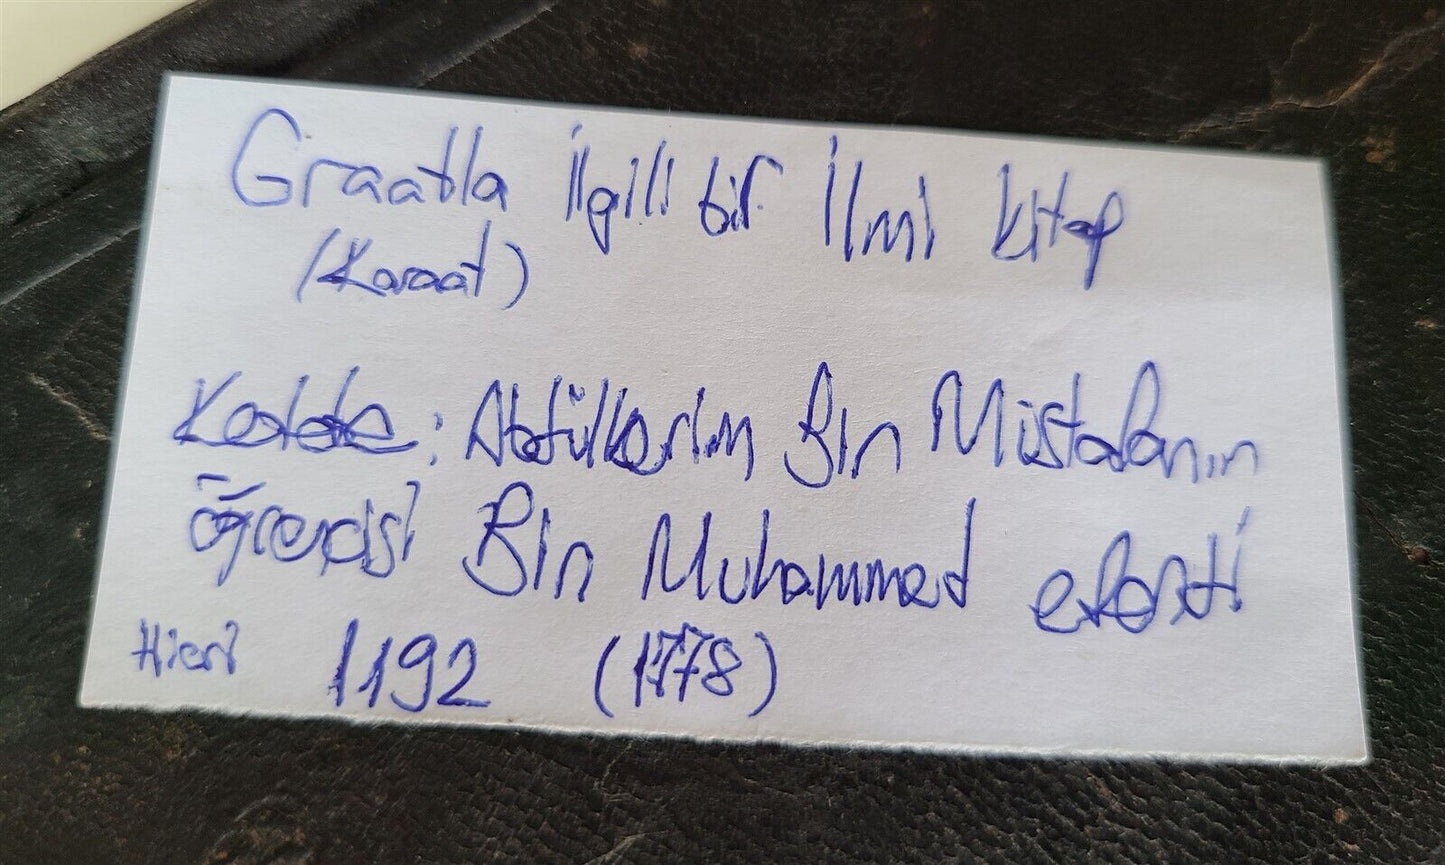 Graatla ilgili bir İlmi kitap
(Karaat)
: Abdülkerim Bin Mustafanın
öğrencisi Bin Muhammed efendi
Hicri 1192 (1778)